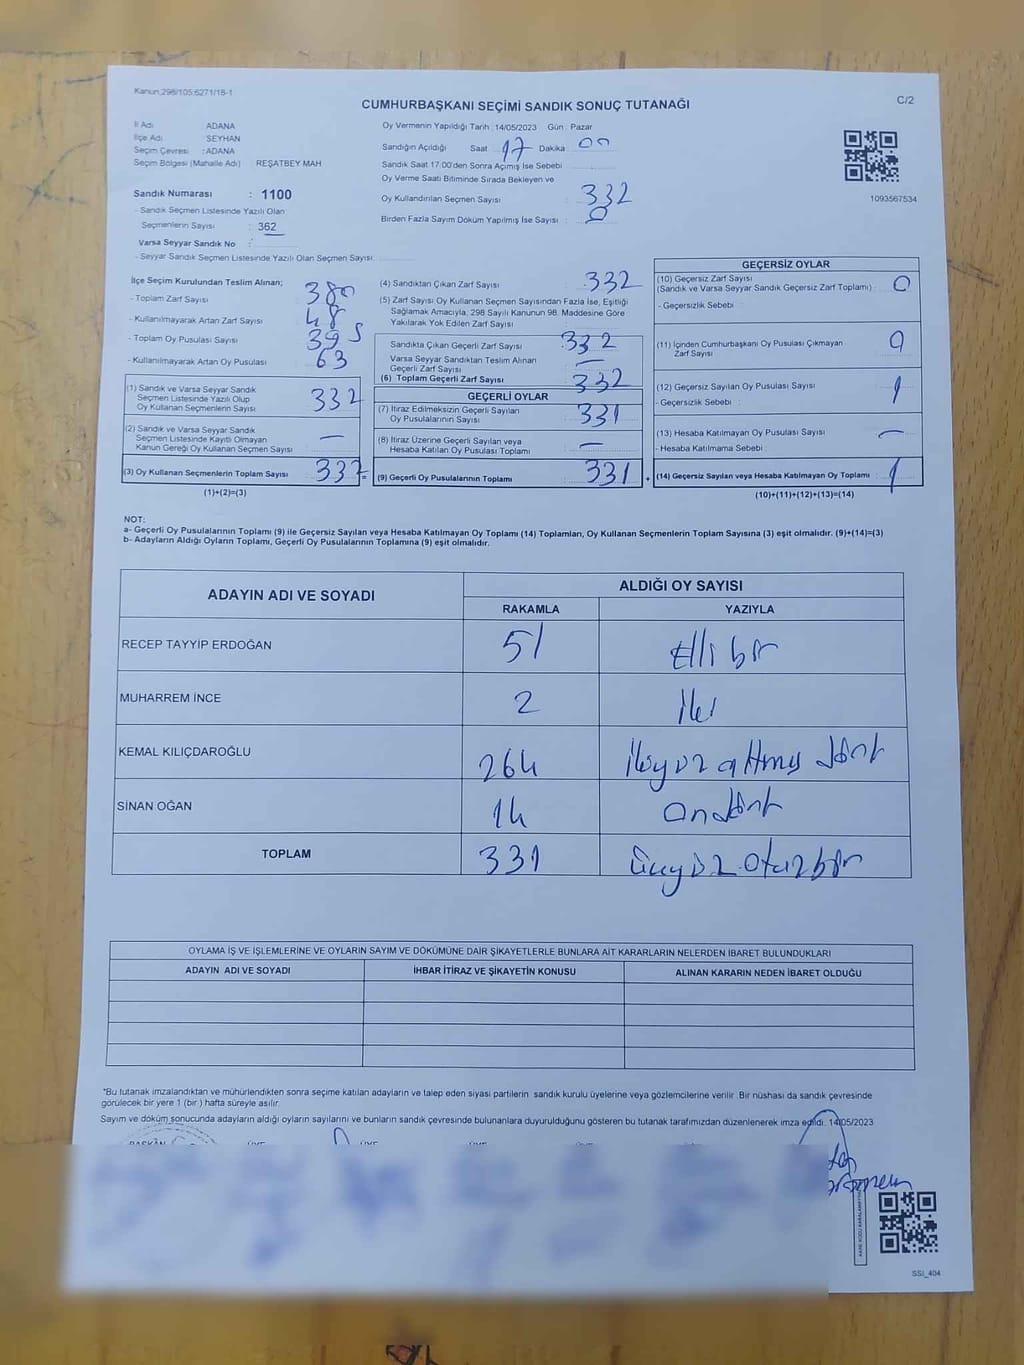 Kanun:298/105;6271/18-1
CUMHURBAŞKANI SEÇİMİ SANDIK SONUÇ TUTANAĞI
C/2
İl Adı : ADANA
İlçe Adı : SEYHAN
Seçim Çevresi : ADANA
Seçim Bölgesi (Mahalle Adı) REŞATBEY MAH
Sandık Numarası : 1100
- Sandık Seçmen Listesinde Yazılı Olan
Seçmenlerin Sayısı : 362
Varsa Seyyar Sandık No :
- Seyyar Sandık Seçmen Listesinde Yazılı Olan Seçmen Sayısı:
Oy Vermenin Yapıldığı Tarih :14/05/2023 Gün : Pazar
Sandığın Açıldığı Saat 17 Dakika 00
Sandık Saat 17:00'den Sonra Açmış İse Sebebi
Oy Verme Saati Bitiminde Sırada Bekleyen ve
Oy Kullandırılan Seçmen Sayısı : 332
Birden Fazla Sayım Döküm Yapılmış İse Sayısı : 0
1093567534
İlçe Seçim Kurulundan Teslim Alınan;
- Toplam Zarf Sayısı : 380
- Kullanılmayarak Artan Zarf Sayısı : 48
- Toplam Oy Pusulası Sayısı : 395
- Kullanılmayarak Artan Oy Pusulası : 63
(1) Sandık ve Varsa Seyyar Sandık
Seçmen Listesinde Yazılı Olup
Oy Kullanan Seçmenlerin Sayısı : 332
(2) Sandık ve Varsa Seyyar Sandık
Seçmen Listesinde Kayıtlı Olmayan
Kanun Gereği Oy Kullanan Seçmen Sayısı : —
(3) Oy Kullanan Seçmenlerin Toplam Sayısı : 332 =
(1)+(2)=(3)
(4) Sandıktan Çıkan Zarf Sayısı : 332
(5) Zarf Sayısı Oy Kullanan Seçmen Sayısından Fazla İse, Eşitliği
Sağlamak Amacıyla, 298 Sayılı Kanunun 98. Maddesine Göre
Yakılarak Yok Edilen Zarf Sayısı :
Sandıkta Çıkan Geçerli Zarf Sayısı : 332
Varsa Seyyar Sandıktan Teslim Alınan
Geçerli Zarf Sayısı : —
(6) Toplam Geçerli Zarf Sayısı : 332
GEÇERLİ OYLAR
(7) İtiraz Edilmeksizin Geçerli Sayılan
Oy Pusulalarının Sayısı : 331
(8) İtiraz Üzerine Geçerli Sayılan veya
Hesaba Katılan Oy Pusulası Toplamı : —
(9) Geçerli Oy Pusulalarının Toplamı : 331 +
GEÇERSİZ OYLAR
(10) Geçersiz Zarf Sayısı
(Sandık ve Varsa Seyyar Sandık Geçersiz Zarf Toplamı) : 0
- Geçersizlik Sebebi :
(11) İçinden Cumhurbaşkanı Oy Pusulası Çıkmayan
Zarf Sayısı : 0
(12) Geçersiz Sayılan Oy Pusulası Sayısı : 1
- Geçersizlik Sebebi :
(13) Hesaba Katılmayan Oy Pusulası Sayısı : —
- Hesaba Katılmama Sebebi :
(14) Geçersiz Sayılan veya Hesaba Katılmayan Oy Toplamı : 1
(10)+(11)+(12)+(13)=(14)
NOT:
a- Geçerli Oy Pusulalarının Toplamı (9) ile Geçersiz Sayılan veya Hesaba Katılmayan Oy Toplamı (14) Toplamları, Oy Kullanan Seçmenlerin Toplam Sayısına (3) eşit olmalıdır. (9)+(14)=(3)
b- Adayların Aldığı Oyların Toplamı, Geçerli Oy Pusulalarının Toplamına (9) eşit olmalıdır.
ADAYIN ADI VE SOYADI
ALDIĞI OY SAYISI
RAKAMLA YAZIYLA
RECEP TAYYİP ERDOĞAN 51 Elli bir
MUHARREM İNCE 2 iki
KEMAL KILIÇDAROĞLU 264 ikiyüz altmış dört
SİNAN OĞAN 14 ondört
TOPLAM 331 üçyüz otuzbir
OYLAMA İŞ VE İŞLEMLERİNE VE OYLARIN SAYIM VE DÖKÜMÜNE DAİR ŞİKAYETLERLE BUNLARA AİT KARARLARIN NELERDEN İBARET BULUNDUKLARI
ADAYIN ADI VE SOYADI İHBAR İTİRAZ VE ŞİKAYETİN KONUSU ALINAN KARARIN NEDEN İBARET OLDUĞU
*Bu tutanak imzalandıktan ve mühürlendikten sonra seçime katılan adayların ve talep eden siyasi partilerin sandık kurulu üyelerine veya gözlemcilerine verilir. Bir nüshası da sandık çevresinde
görülecek bir yere 1 (bir ) hafta süreyle asılır.
Sayım ve döküm sonucunda adayların aldığı oyların sayılarını ve bunların sandık çevresinde bulunanlara duyurulduğunu gösteren bu tutanak tarafımızdan düzenlenerek imza edildi. 14/05/2023
BAŞKAN ÜYE ÜYE ÜYE ÜYE ÜYE
SSI_404